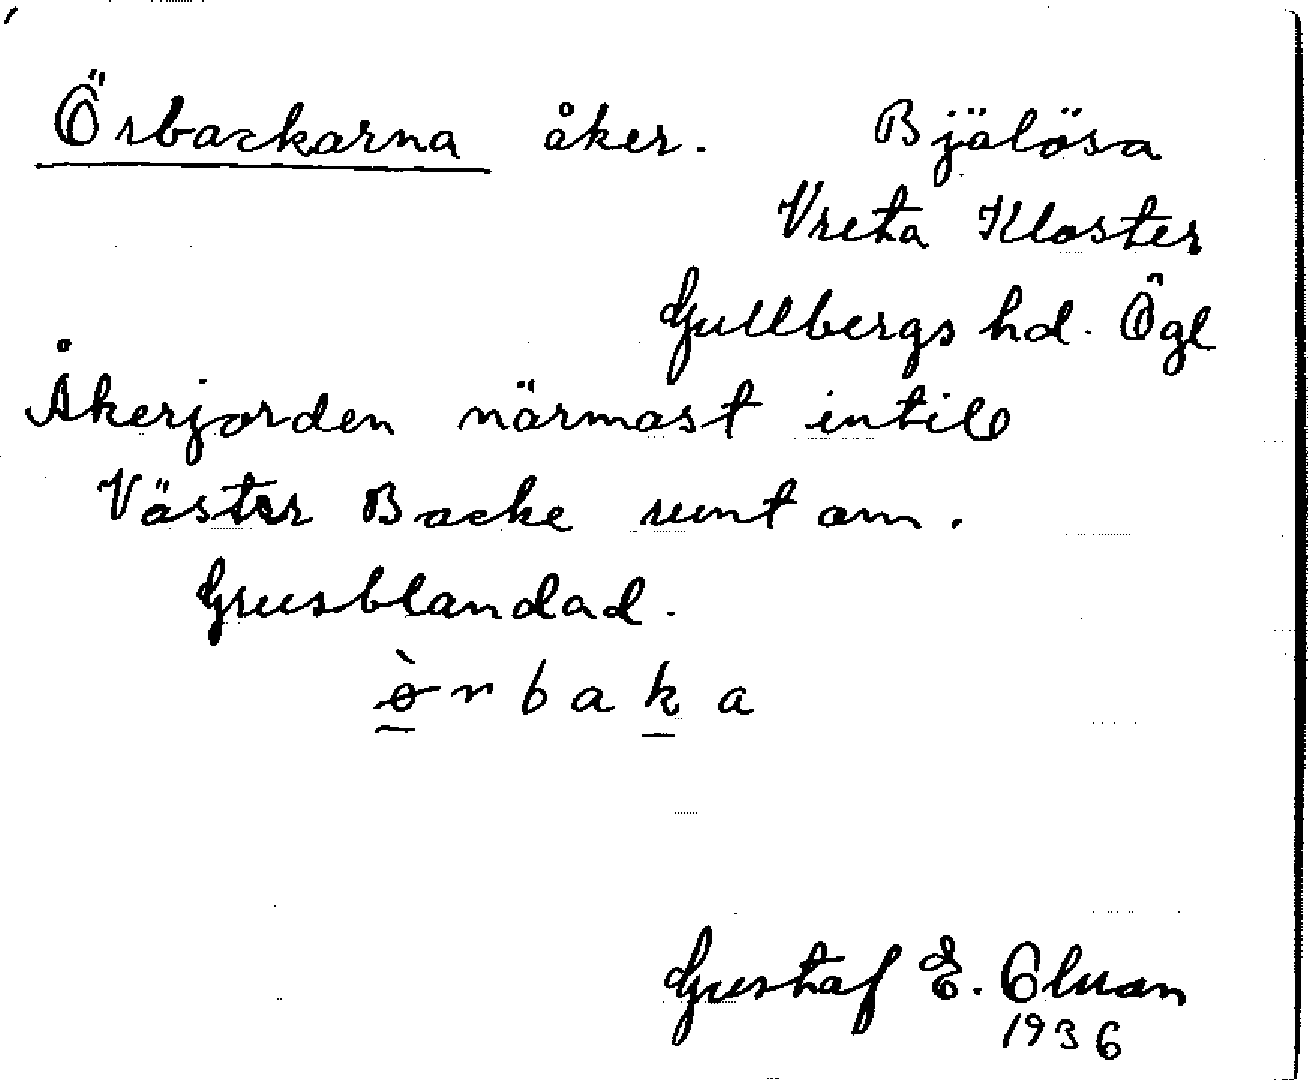 Örbackarna åker. Bjälösa
Vreta Kloster
Gullbergs hd. Ögl
Åkerjorden närmast intill
Väster Backe runt om.
Grusblandad.
ø̀rbaka
Gustaf E.
1936